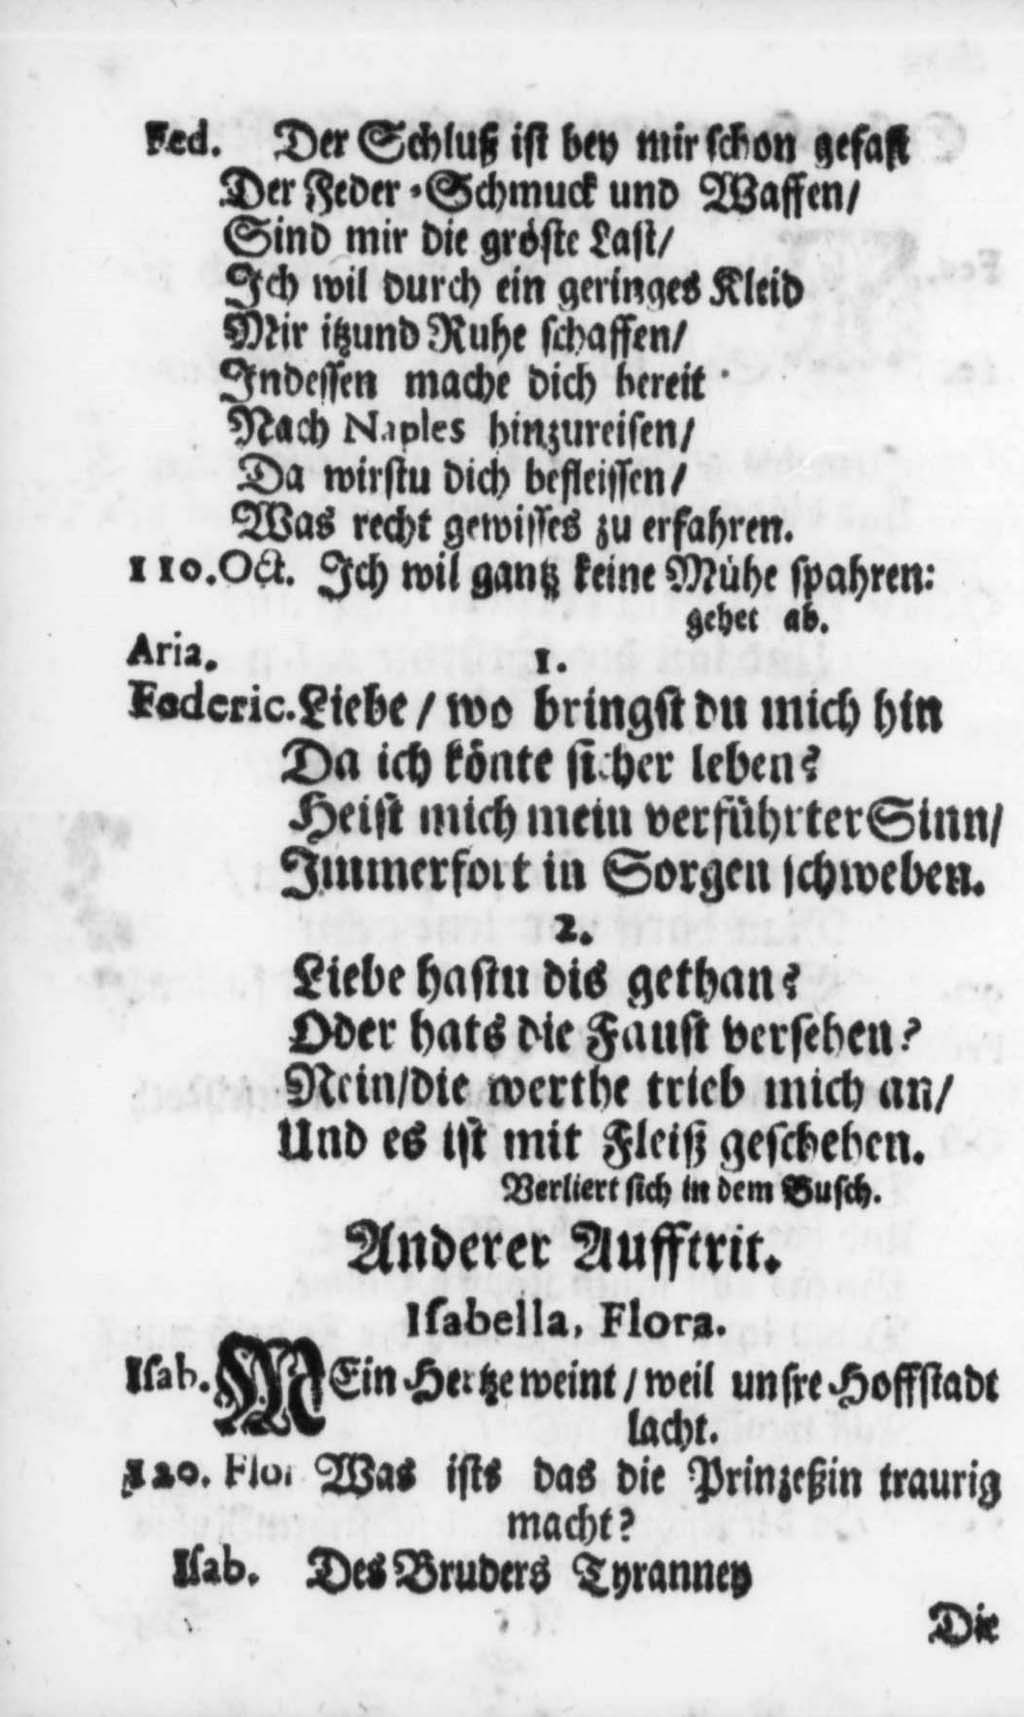 Fed. Der Schluß ist bey mir schon gefast
Der Feder-Schmuck und Waffen/
Sind mir die gröste Last/
Ich wil durch ein geringes Kleid
Mir itzund Ruhe schaffen/
Indessen mache dich bereit
Nach Naples hinzureisen/
Da wirstu dich befleissen/
Was recht gewisses zu erfahren.
110. Oct. Ich wil gantz keine Mühe spahren:
gehet ab.
Aria. 1.
Federic. Liebe / wo bringst du mich hin
Da ich könte sicher leben?
Heist mich mein verführter Sinn/
Immerfort in Sorgen schweben.
2.
Liebe hastu dis gethan?
Oder hats die Faust versehen?
Nein/die werthe trieb mich an/
Und es ist mit Fleiß geschehen.
Verliert sich in dem Busch.
Anderer Aufftrit.
Isabella, Flora.
Isab. MEin Hertze weint / weil unsre Hoffstadt
lacht.
120. Flor Was ists das die Prinzeßin traurig
macht?
Isab. Des Bruders Tyranney
Die